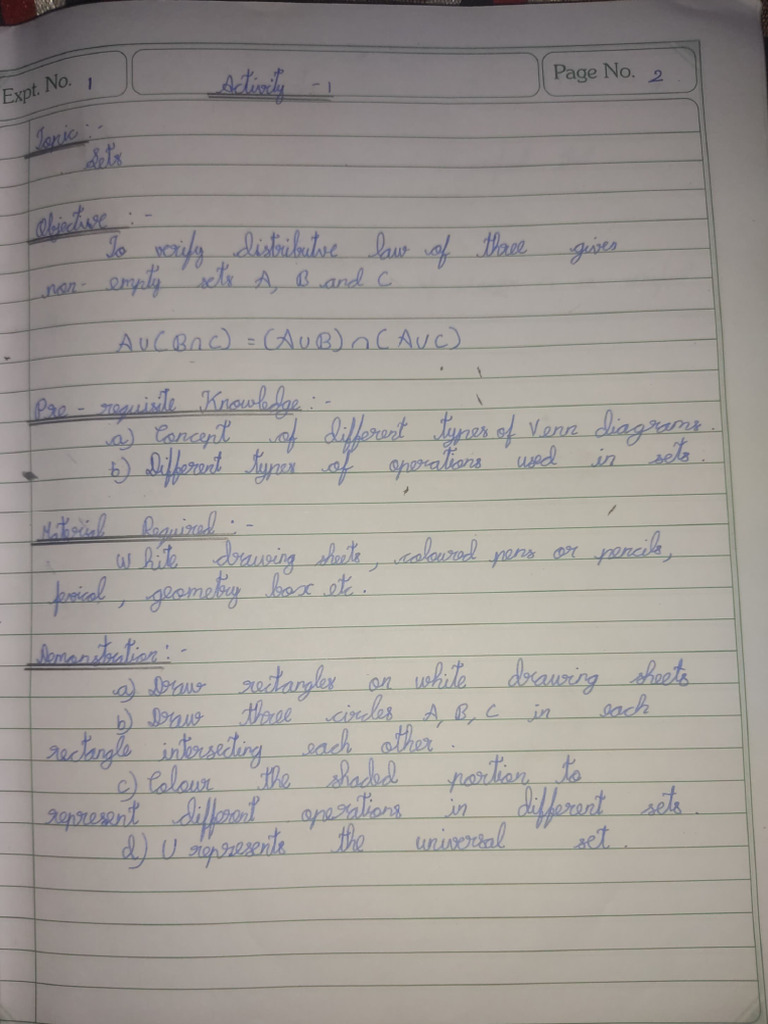 Expt. No. 1
Activity - 1
Page No. 2
Topic :-
Sets
Objective :-
To verify distributve law of three given
non- empty sets A, B and C
A∪(B∩C) = (A∪B)∩(A∪C)
Pre - requisite Knowledge :-
a) Concept of different types of Venn diagrams.
b) Different types of operations used in sets.
Material Required :-
White drawing sheets, coloured pens or pencils,
pencil, geometry box etc.
Demonstration :-
a) Draw rectangles on white drawing sheets
b) Draw three circles A, B, C in each
rectangle intersecting each other.
c) Colour the shaded portion to
represent different operations in different sets.
d) U represents the universal set.